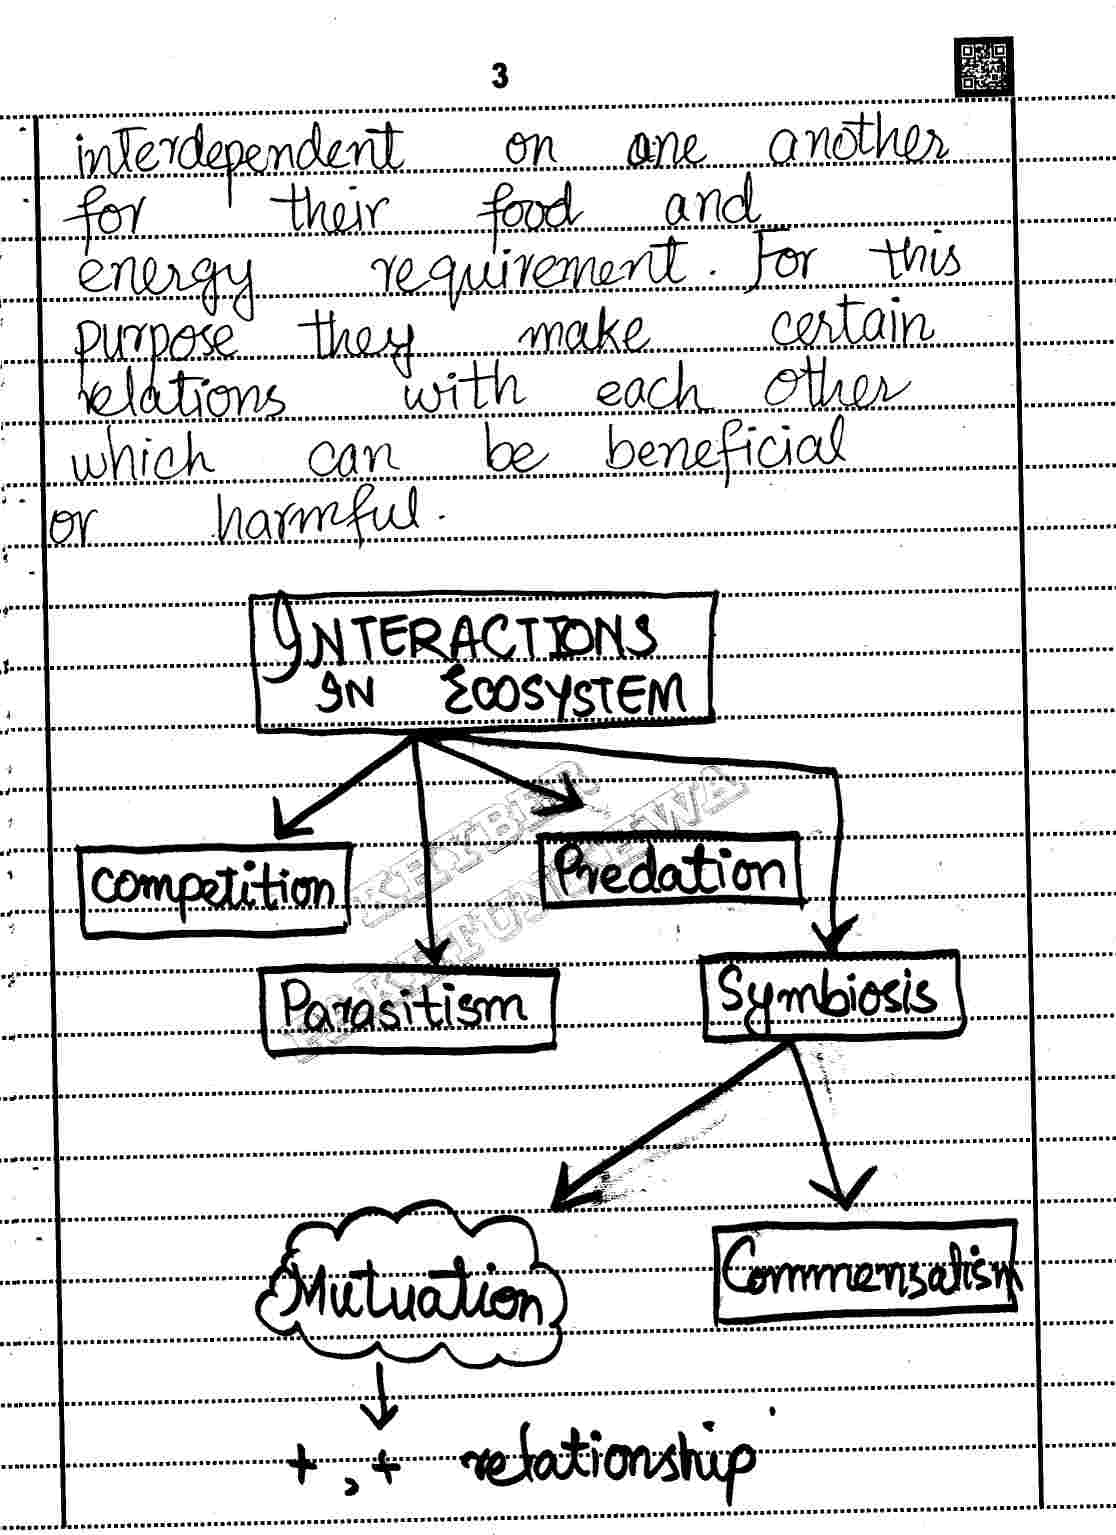 3
interdependent on one another
for their food and
energy requirement. For this
purpose they make certain
relations with each other
which can be beneficial
or harmful.
INTERACTIONS
IN ECOSYSTEM
KHYBER
PAKHTUNKHWA
Competition
Predation
Parasitism
Symbiosis
Mutuation
Commensatism
+, + relationship